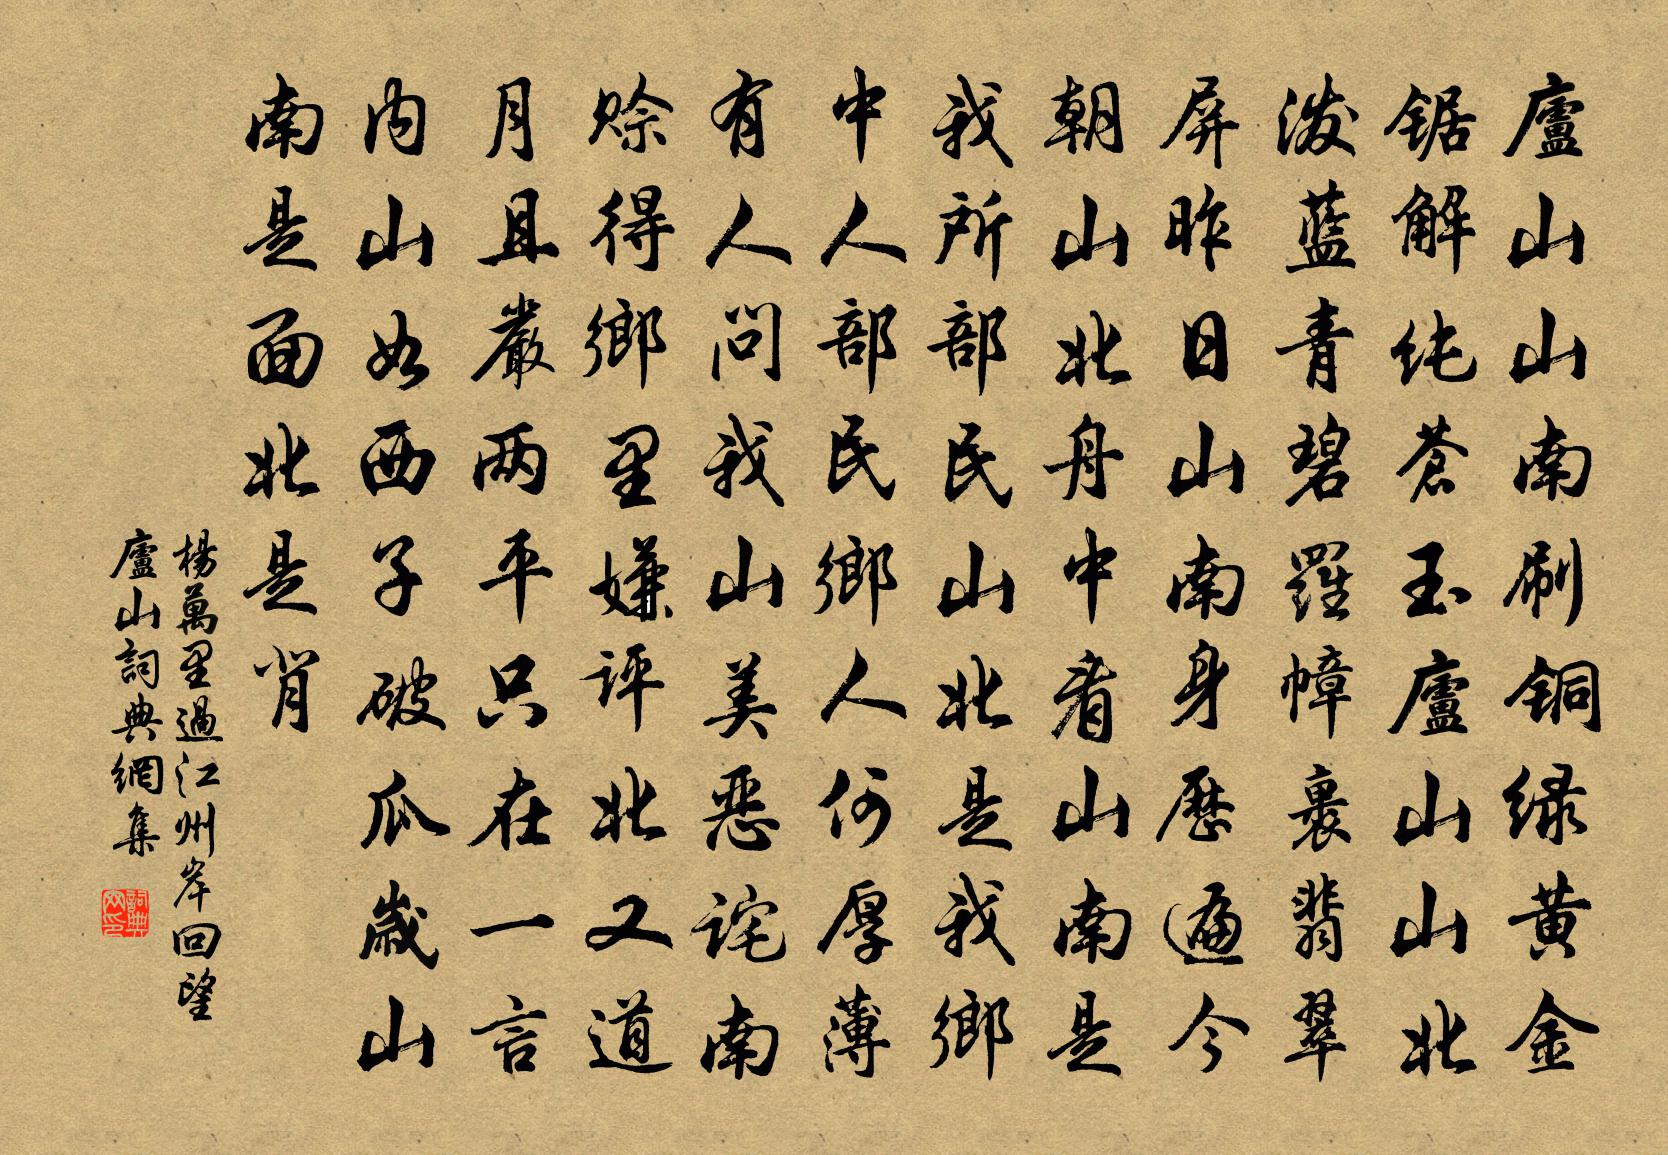 廬山山南刷铜绿黄金
锯解纯苍玉廬山山北
泼蓝青碧罗幛裹翡翠
屏昨日山南身历遍今
朝山北舟中看山南是
我所部民山北是我鄉
中人部民鄉人何厚薄
有人问我山美恶诧南
赊得鄉里嫌評北又道
月且嚴两平只在一言
内山如西子破瓜歲山
南是面北是背
楊萬里過江州岸回望
廬山詞典網集
詞典网印